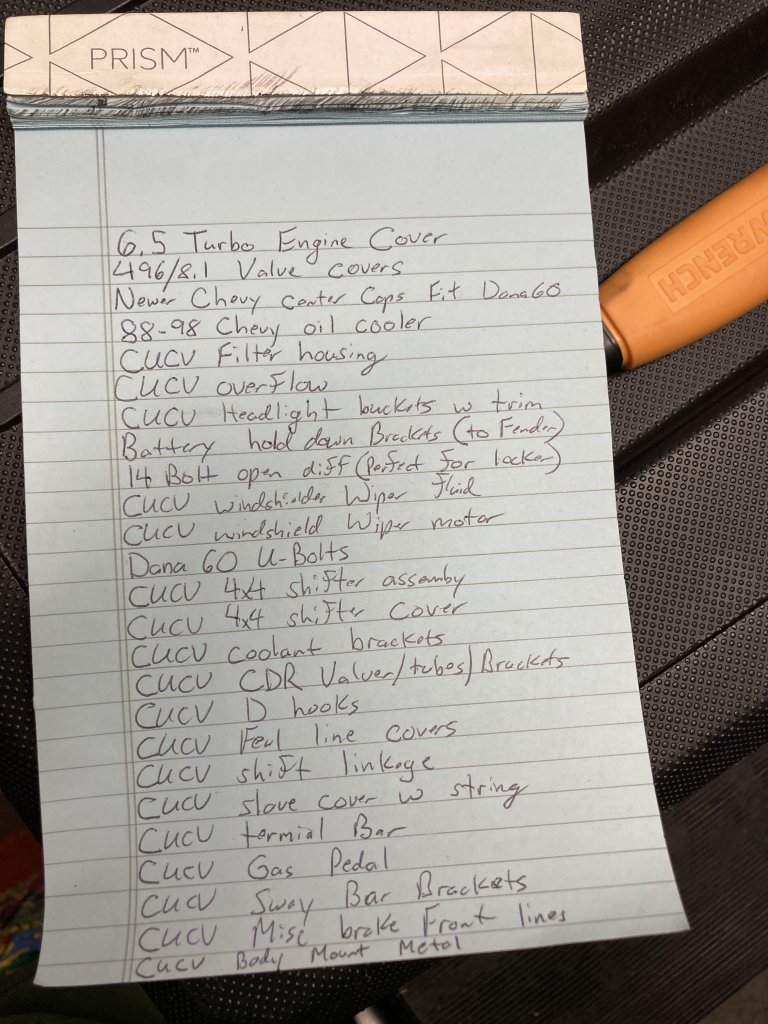 PRISM™
WRENCH
6.5 Turbo Engine Cover
496/8.1 Valve covers
Newer Chevy center Caps Fit Dana60
88-98 Chevy oil cooler
CUCV Filter housing
CUCV overflow
CUCV Headlight buckets w trim
Battery hold down Brackets (to Fender)
14 Bolt open diff (Perfect for locker)
CUCV windshielder Wiper fluid
CUCV windshield Wiper motor
Dana 60 U-Bolts
CUCV 4x4 shifter assemby
CUCV 4x4 shifter Cover
CUCV coolant brackets
CUCV CDR Valver/tubes/Brackets
CUCV D hooks
CUCV Feul line covers
CUCV shift linkage
CUCV slave cover w string
CUCV termial Bar
CUCV Gas Pedal
CUCV Sway Bar Brackets
CUCV Misc brake Front lines
CUCV Body Mount Metal